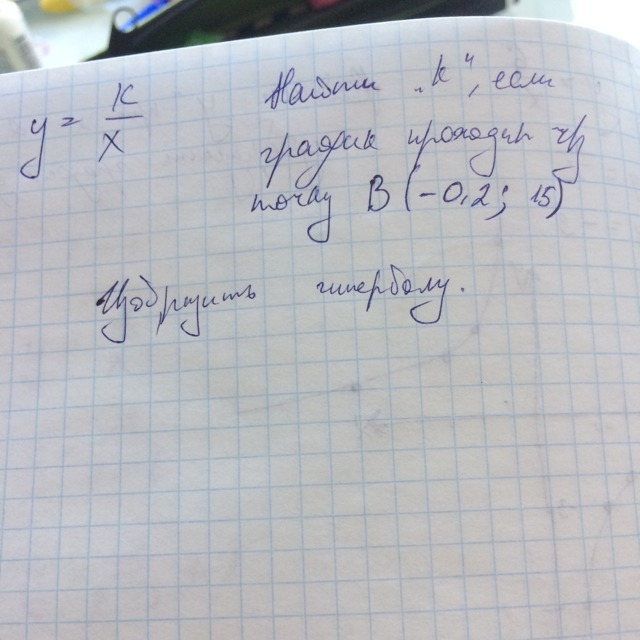 y = K/X
Найти „k", если
график проходит ч/з
точку B (-0,2; 15)
Изобразить гиперболу.